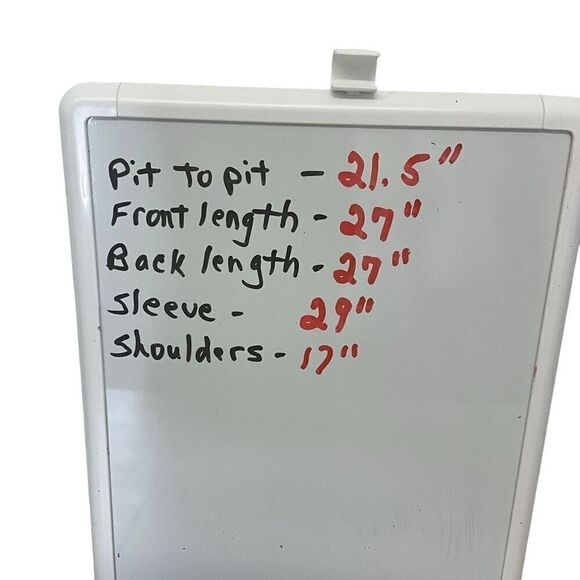 Pit to pit - 21.5"
Front length - 27"
Back length - 27"
Sleeve - 29"
Shoulders - 17"